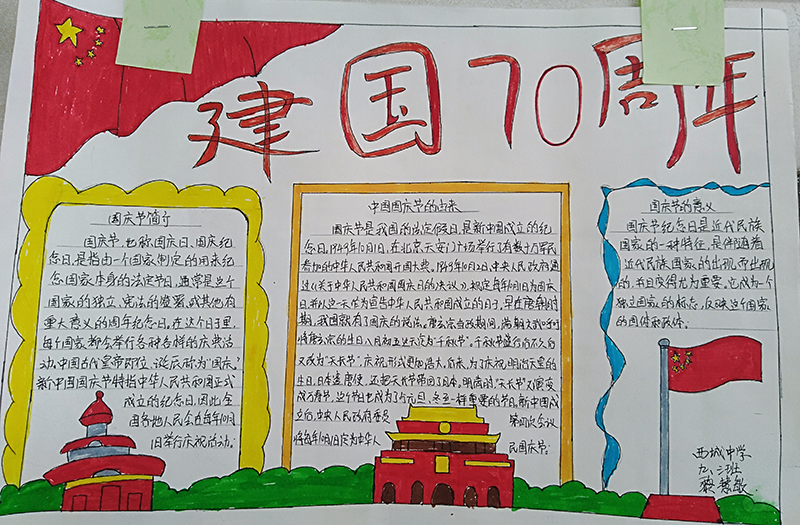 建国70周年
国庆节简介
国庆节,也称国庆日、国庆纪
念日,是指由一个国家制定的用来纪
念国家本身的法定节日,通常是这个
国家的独立、宪法的签署,或其他有
重大意义的周年纪念日。在这个日子里,
每个国家都会举行各种各样的庆典活
动。中国古代皇帝即位、诞辰称为“国庆”。
新中国国庆节特指中华人民共和国正式
成立的纪念日,因此全
国各地人民会在每年10月1
日举行庆祝活动。
中国国庆节的由来
国庆节是我国的法定假日,是新中国成立的纪
念日。1949年10月1日,在北京天安门广场举行了有数十万军民
参加的中华人民共和国开国大典。1949年10月2日,中央人民政府通
过《关于中华人民共和国国庆日的决议》,规定每年10月1日为国庆
日,并以这一天作为宣告中华人民共和国成立的日子。早在唐朝时
期,我国就有了国庆的说法,唐玄宗当政期间,满朝文武
将唐玄宗的生日八月初五这天定为“千秋节”。千秋节盛行后不久
又改为“天长节”,庆祝形式更加浩大。后来,为了庆祝明治天皇的
生日,日本遣唐使,还把天长节带回了日本。明清的“天长节”又演变
成万寿节,这个节日也成为了个元旦、冬至一样重要的节日。新中国成
立后,中央人民政府委员 第四次会议
将每年10月1日定为中华人 民国庆节。
国庆节的意义
国庆纪念日是近代民族
国家的一种特征,是伴随着
近代民族国家的出现而出现
的,并且变得尤为重要。它成为一个
独立国家的标志,反映这个国家
的国体和政体。
西城中学
九、二班
蔡慧敏